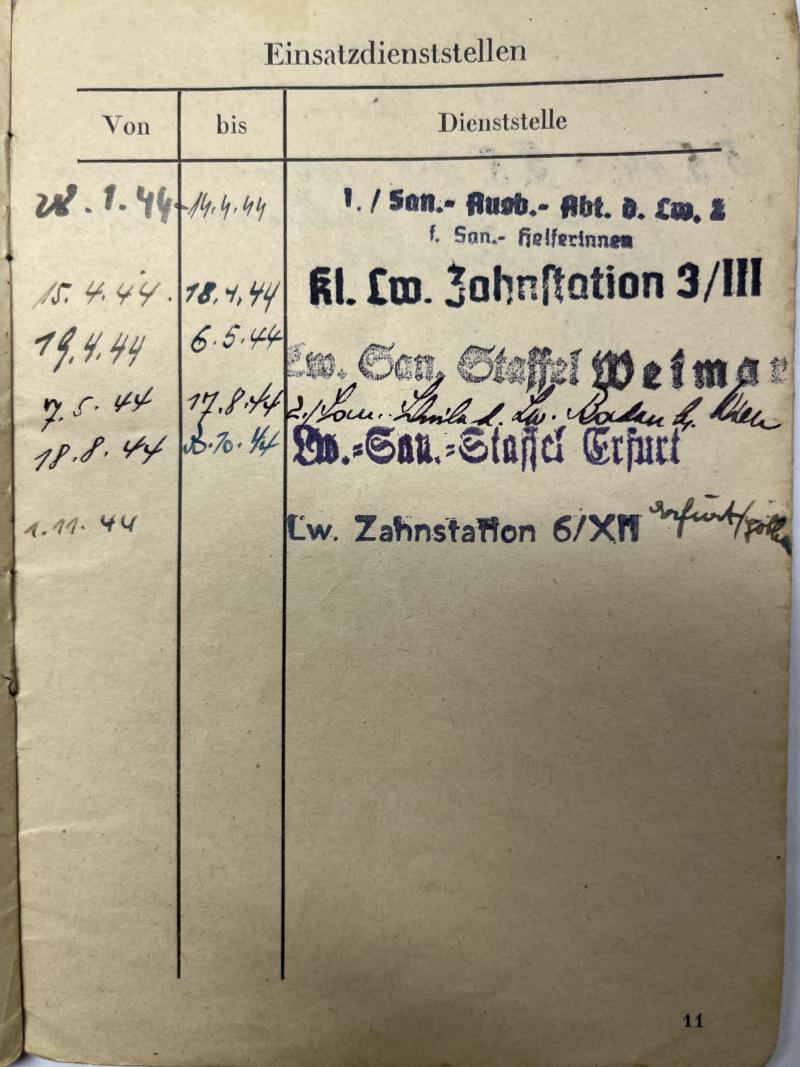 Einsatzdienststellen
Von bis Dienststelle
28.1.44 - 14.4.44 1./San.-Ausb.-Abt. d. Lw. 2
f. San.- Helferinnen
15.4.44. 18.4.44 Kl. Lw. Zahnstation 3/III
19.4.44 6.5.44 Lw. San. Staffel Weimar
7.5.44 17.8.44 2./San. Schule d. Lw. Baden b. Wien
18.8.44 .10.44 Lw.-San.-Staffel Erfurt
1.11.44 Lw. Zahnstation 6/XII Erfurt/Gotha
11